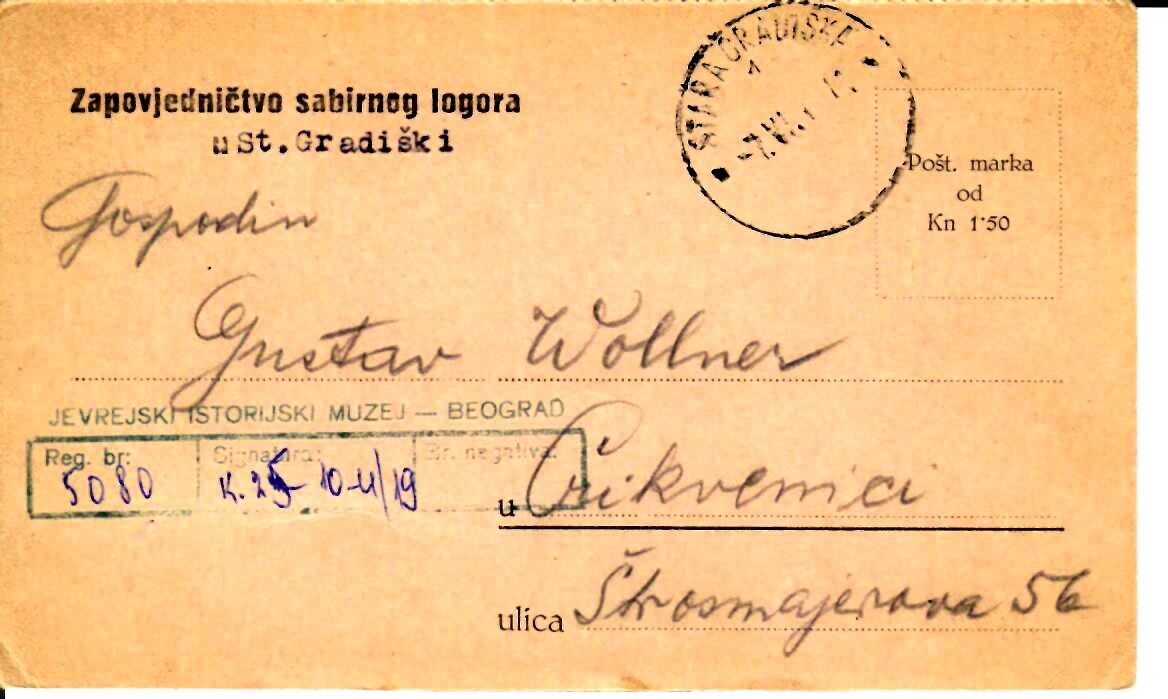 Zapovjedničtvo sabirnog logora
u St.Gradiški
STARA GRADIŠKA
Pošt. marka
od
Kn 1·50
Gospodin
Gustav Wollner
JEVREJSKI ISTORIJSKI MUZEJ — BEOGRAD
Reg. br: Signatura: Br. negativa:
5080
u Crikvenici
ulica Štrosmajerova 56